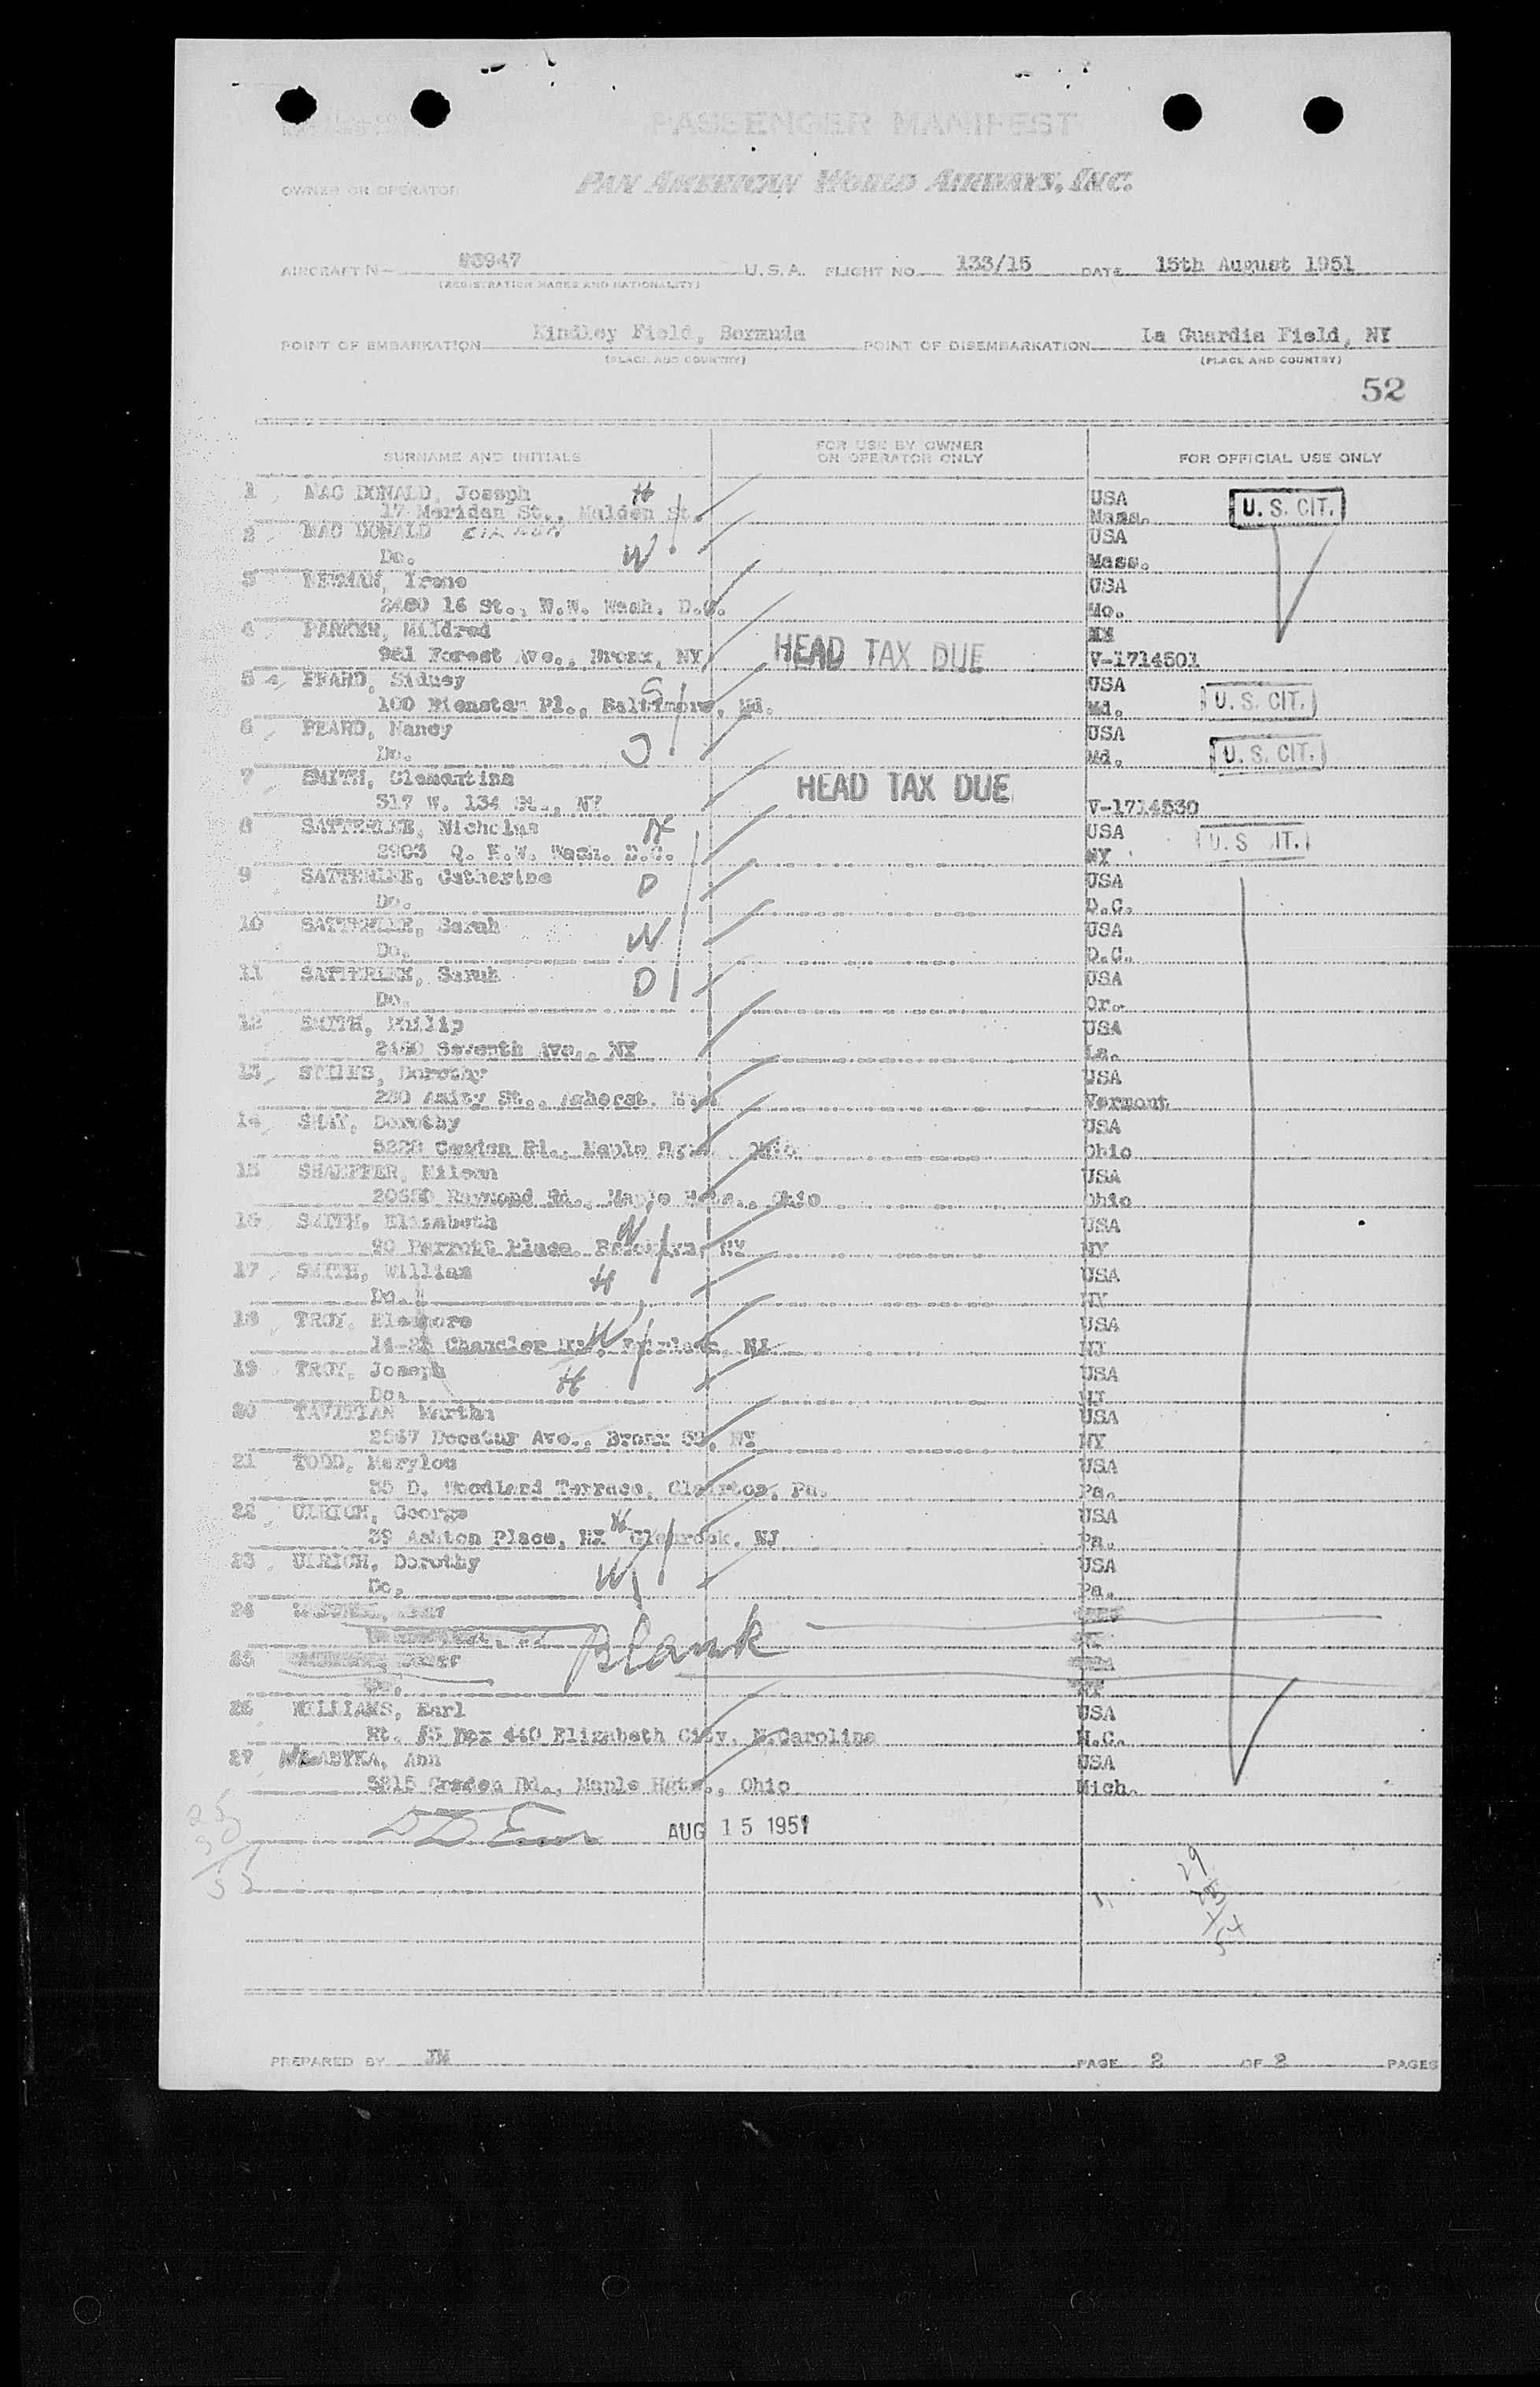 PASSENGER MANIFEST
OWNER OR OPERATOR PAN AMERICAN WORLD AIRWAYS, INC.
AIRCRAFT N— U.S.A. FLIGHT NO. 133/15 DATE 15th August 1951
(REGISTRATION MARKS AND NATIONALITY)
POINT OF EMBARKATION Kindley Field, Bermuda POINT OF DISEMBARKATION La Guardia Field, NY
(PLACE AND COUNTRY) (PLACE AND COUNTRY)
52
SURNAME AND INITIALS FOR USE BY OWNER OR OPERATOR ONLY FOR OFFICIAL USE ONLY
1 MAC DONALD, Joseph H USA U. S. CIT.
17 Meriden St., Malden St. Mass.
2 MAC DONALD USA
Do. W Mass.
3 Irene USA
2480 16 St., N.W. Wash. D.C. Mo.
4 PARKER, Mildred
981 Forest Ave., Bronx, NY HEAD TAX DUE V-1714501
5 PEARD, Sidney S USA U. S. CIT.
100 Pl., Baltimore, Md. Md.
6 PEARD, Nancy USA
Do. Md. U. S. CIT.
7 SMITH, Clementina HEAD TAX DUE
317 W. 134 St., NY V-1714530
8 SATTERLEE, Nicholas H USA U. S. CIT.
2903 Q. N.W. Wash. D.C. NY
9 SATTERLEE, Catherine D USA
Do. D.C.
10 SATTERLEE, Sarah W USA
Do. D.C.
11 SATTERLEE, Sarah D USA
Do. Or.
12 SMITH, Philip USA
2460 Seventh Ave., NY La.
13 Dorothy USA
280 Amity St., Amherst, Vermont
14 Dorothy USA
Maple Ohio Ohio
15 SHAEFFER, Eileen USA
Raymond Rd., Maple Hgts., Ohio Ohio
16 SMITH, Elizabeth W USA
90 Parrott Place, Brooklyn, NY NY
17 SMITH, William H USA
Do. NY
18 TROY, Eleanore W USA
Chandler NJ NJ
19 TROY, Joseph H USA
Do. NJ
20 Martha USA
2547 Decatur Ave., Bronx 58, NY NY
21 TODD, Marylou USA
35 D. Woodland Terrace, Clairton, Pa. Pa.
22 ULRICH, George H USA
39 Ashton Place, Glenrock, NJ Pa.
23 ULRICH, Dorothy USA
Do. W Pa.
24
Blank
25
26 WILLIAMS, Earl USA
Rt. #5 Box 440 Elizabeth City, N.Carolina N.C.
27 Ann USA
Rd., Maple Hgts., Ohio Mich.
AUG 15 1951
PREPARED BY JM PAGE 2 OF 2 PAGES